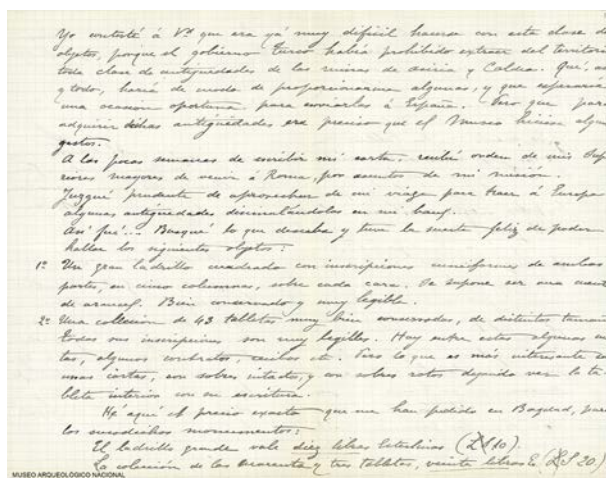 Yo contesté á Vd que era yá muy dificil hacerse con esta clase de
objetos, porque el gobierno turco habia prohibido extraer del territorio
toda clase de antigüedades de las ruinas de Asiria y Caldea. Qué, así
y todo, haria de modo de proporcionarme algunas, y que esperaria
una ocasion oportuna para enviarlas á España. Pero que para
adquirir dichas antigüedades era preciso que el Museo hiciese algunos
gastos.
A las pocas semanas de escribir mi carta, recibí orden de mis Supe
riores mayores de venir á Roma, por asuntos de mi mision.
Juzgué prudente de aprovechar de mi viage para traer á Europa
algunas antigüedades disimulándolas en mi baul.
Asi fué... Busqué lo que deseaba y tuve la suerte feliz de poder
hallar los siguientes objetos:
1º Un gran ladrillo cuadrado con inscripciones cuneiformes de ambas
partes, en cinco columnas, sobre cada cara. Se supone ser una
de arancel. Bien conservado y muy legible.
2º Una collecion de 43 tabletas muy bien conservadas, de distintos tamaños
todas sus inscripciones son muy legibles. Hay entre estas algunas
algunos contratos, recibos etc. Pero lo que es más interesante son
unas cartas, con sobres intactos, y con sobres rotos dejando ver la ta
bleta interior con su escritura.
Hé aquí el precio exacto que me han pedido en Bagdad, por
los susodichos monumentos:
El ladrillo grande vale diez libras Esterlinas (L S 10).
La coleccion de las cuarenta y tres tabletas, veinte libras E. (L S 20)
MUSEO ARQUEOLÓGICO NACIONAL